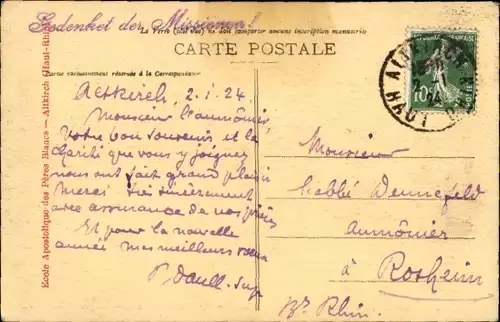 Gedenket der Missionen!
Le Verso (Côté vue) ne doit comporter aucune inscription manuscrite
CARTE POSTALE
Partie exclusivement réservée à la Correspondance
Ecole Apostolique des Pères Blancs — Altkirch (Haut-Rhin)
Altkirch, 2.1.24
Monsieur l'aumônier
Votre bon souvenir et la
charité que vous y joignez
nous ont fait grand plaisir
Merci très sincèrement
avec assurance de nos prières
Et pour la nouvelle
année mes meilleurs vœux
P. Sup.
Monsieur
l'abbé Dennefeld
aumônier
à Rosheim
Bs Rhin.
10
POSTES
ALTKIRCH
HAUT